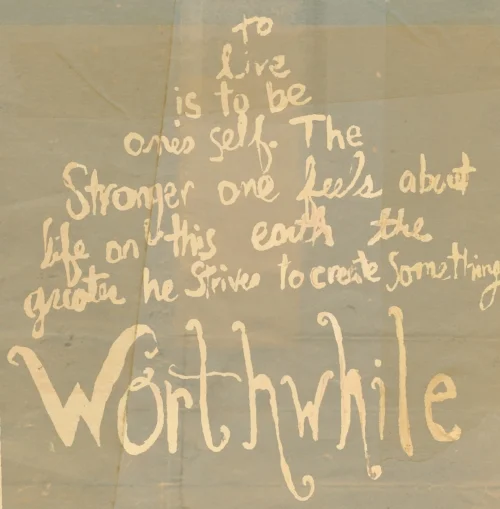 to
live
is to be
ones self. The
Stronger one feels about
life on this earth the
greater he Strives to create Something
Worthwhile